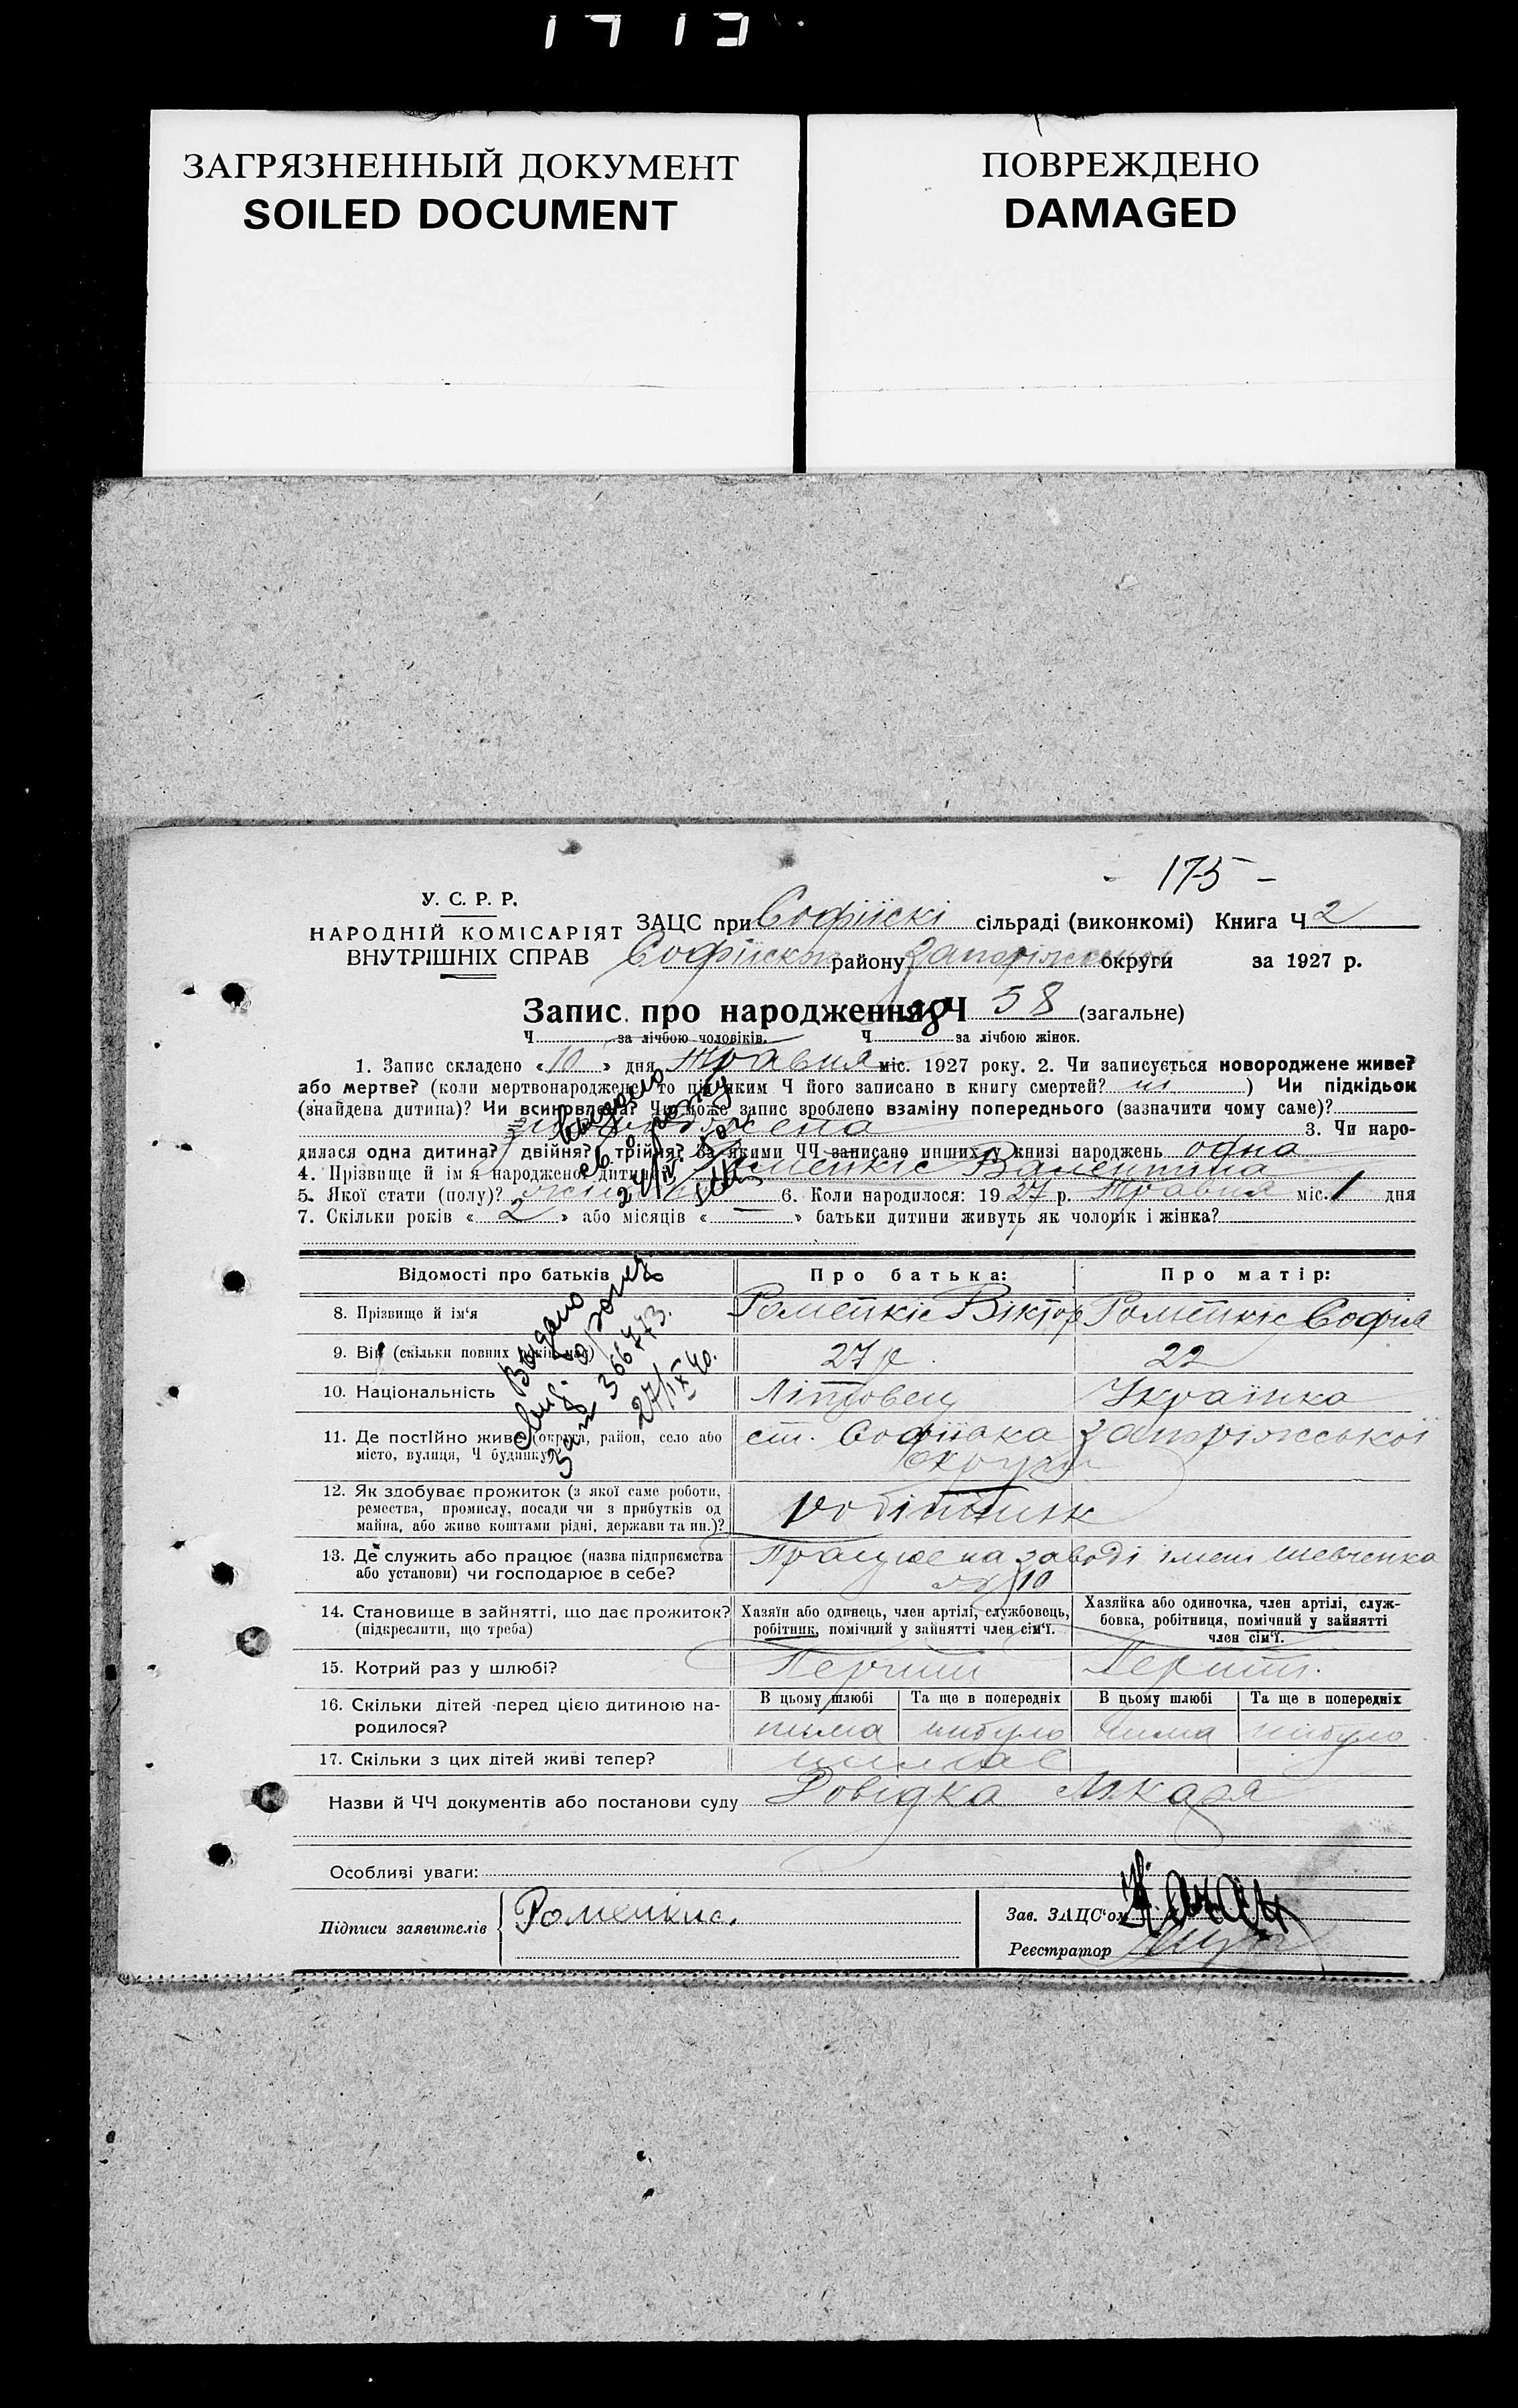 ЗАГРЯЗНЕННЫЙ ДОКУМЕНТ
SOILED DOCUMENT
ПОВРЕЖДЕНО
DAMAGED
- 175 -
У. С. Р. Р.
НАРОДНІЙ КОМІСАРІЯТ
ВНУТРІШНІХ СПРАВ
ЗАЦС при Софіїскі сільраді (виконкомі) Книга Ч 2
Софіїськ району Запоріжськ округи за 1927 р.
Запис про народження Ч 58 (загальне)
Ч за лічбою чоловіків. Ч 28 за лічбою жінок.
1. Запис складено « 10 » дня Травня міс. 1927 року. 2. Чи записується новороджене живе?
або мертве? (коли мертвонароджене, то під яким Ч його записано в книгу смертей? ) Чи підкідьок
(знайдена дитина)? Чи всиновлена? Чи може запис зроблено взаміну попереднього (зазначити чому саме)?
3. Чи наро-
дилася одна дитина? двійня? трійня? За якими ЧЧ записано инших у книзі народжень одна
4. Прізвище й ім'я народженої дитини Ромейкіс Валентина
5. Якої стати (полу)? 6. Коли народилося: 1927 р. Травня міс. 1 дня
7. Скільки років « 2 » або місяців « — » батьки дитини живуть як чоловік і жінка?
Видано
24/IV
Відомості про батьків Про батька: Про матір:
8. Прізвище й ім'я Ромейкіс Віктор Ромейкіс Софія
9. Вік (скільки повних років має) 27 р. 22
10. Національність Літовец Українка
11. Де постійно живе (округа, район, село або
місто, вулиця, Ч будинку) ст. Софіївка Запоріжської
округи
Видано
366773.
27/IX 40.
12. Як здобуває прожиток (з якої саме роботи,
ремества, промислу, посади чи з прибутків од
майна, або живе коштами рідні, держави та ин.)? робітник
13. Де служить або працює (назва підприємства
або установи) чи господарює в себе? Працює на заводі імені Шевченка
10
14. Становище в зайнятті, що дає прожиток?
(підкреслити, що треба)
Хазяїн або одинець, член артілі, службовець,
робітник, помічний у зайнятті член сім'ї.
Хазяйка або одиночка, член артілі, служ-
бовка, робітниця, помічний у зайнятті
член сім'ї.
15. Котрий раз у шлюбі? Перший Перший.
16. Скільки дітей перед цією дитиною на-
родилося?
В цьому шлюбі Та ще в попередніх В цьому шлюбі Та ще в попередніх
нима нибуло нима нибуло
17. Скільки з цих дітей живі тепер? нимає
Назви й ЧЧ документів або постанови суду Довідка Лікаря
Особливі уваги:
Підписи заявителів Ромейкис.
Зав. ЗАЦС'ом
Реєстратор